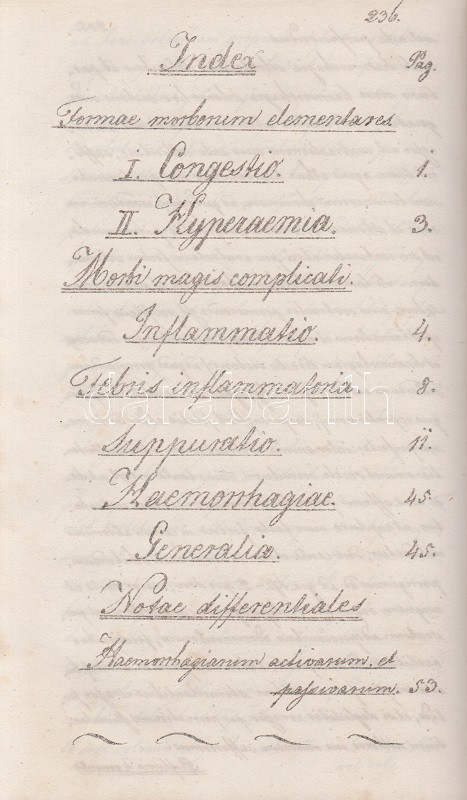 236.
Index Pag.
Formae morborum elementares
I. Congestio. 1.
II. Hyperaemia. 3.
Morbi magis complicati.
Inflammatio. 4.
Febris inflammatoria. 8.
Suppuratio. 11.
Haemorrhagiae. 45.
Generalia. 45.
Notae differentiales
Haemorrhagiarum activarum, et
passivarum. 53.
darabanth